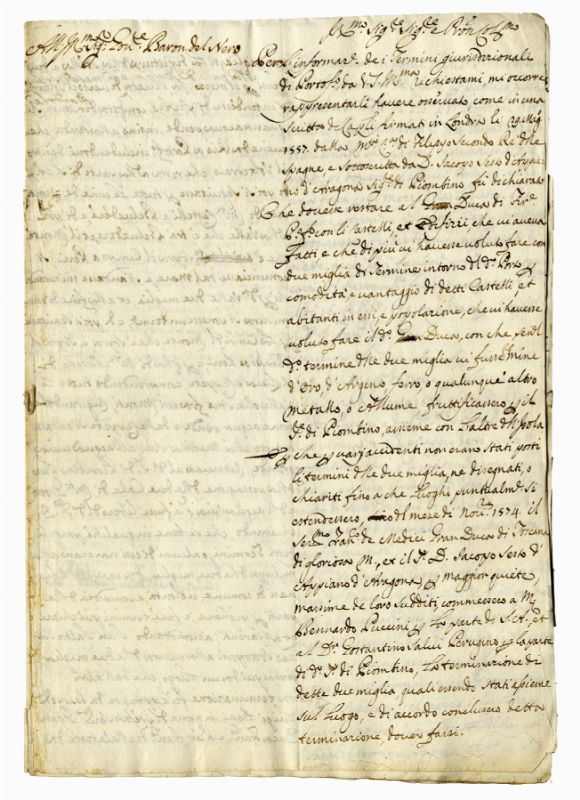 All Ill.mo Sig.re Cav.re Baron del Nero
Ill.mo Sig.re Sig.re e Pron Col.mo
Per l'informaz.e de i Termini giurisdizionali
di Portof.o da V.S. Ill.ma richiestami, mi occorre
rappresentarle havere osservato come in una
Scritta de Capli firmati in Londra le 29 Mag.o
1557 dalla M.tà di Filippo Secondo Re delle
Spagne, e sottoscritta da D. Jacopo Sesto d'Appia
no d'Aragona Sig.re di Piombino fù dichiarato
Che dovesse restare al Duca di Fir.e
con li Castelli et Edifizii, che vi aveva
fatti e che di più vi havesse voluto fare con
due miglia di Termine intorno al d.o Porto p
comodità e vantaggio di detti Castelli et
abitanti in essi, e popolazione, che vi havesse
voluto fare il d.o Gran Duca, con che se nel
d.o termine delle due miglia vi fusse mine
d'Oro d'Argento, ferro o qualunque altro
metallo, o Allume, fruttificassero p il
d.o di Piombino, assieme con l'altre dell'Isola
e che p varj accidenti non erano stati posti
li termini delle due miglia, ne disegnati, o
chiariti fino a che luoghi puntualm.e si
estendessero, del mese di Nov.e 1574. il
Ser.mo Fran.co de Medici Gran Duca di Toscana
di gloriosa M., et il S. D. Jacopo Sesto d'
Appiano d'Aragona p maggior quiete,
massime de loro sudditi commessero a M.
Bernardo Puccini p la parte di S.A. et
al D. Gostantino Salvi Perugino p la parte
di d.o S. di Piombino, la terminazione di
dette due miglia quali essendo stati assieme
sul luogo, e di accordo conclusero detta
terminazione dover farsi.